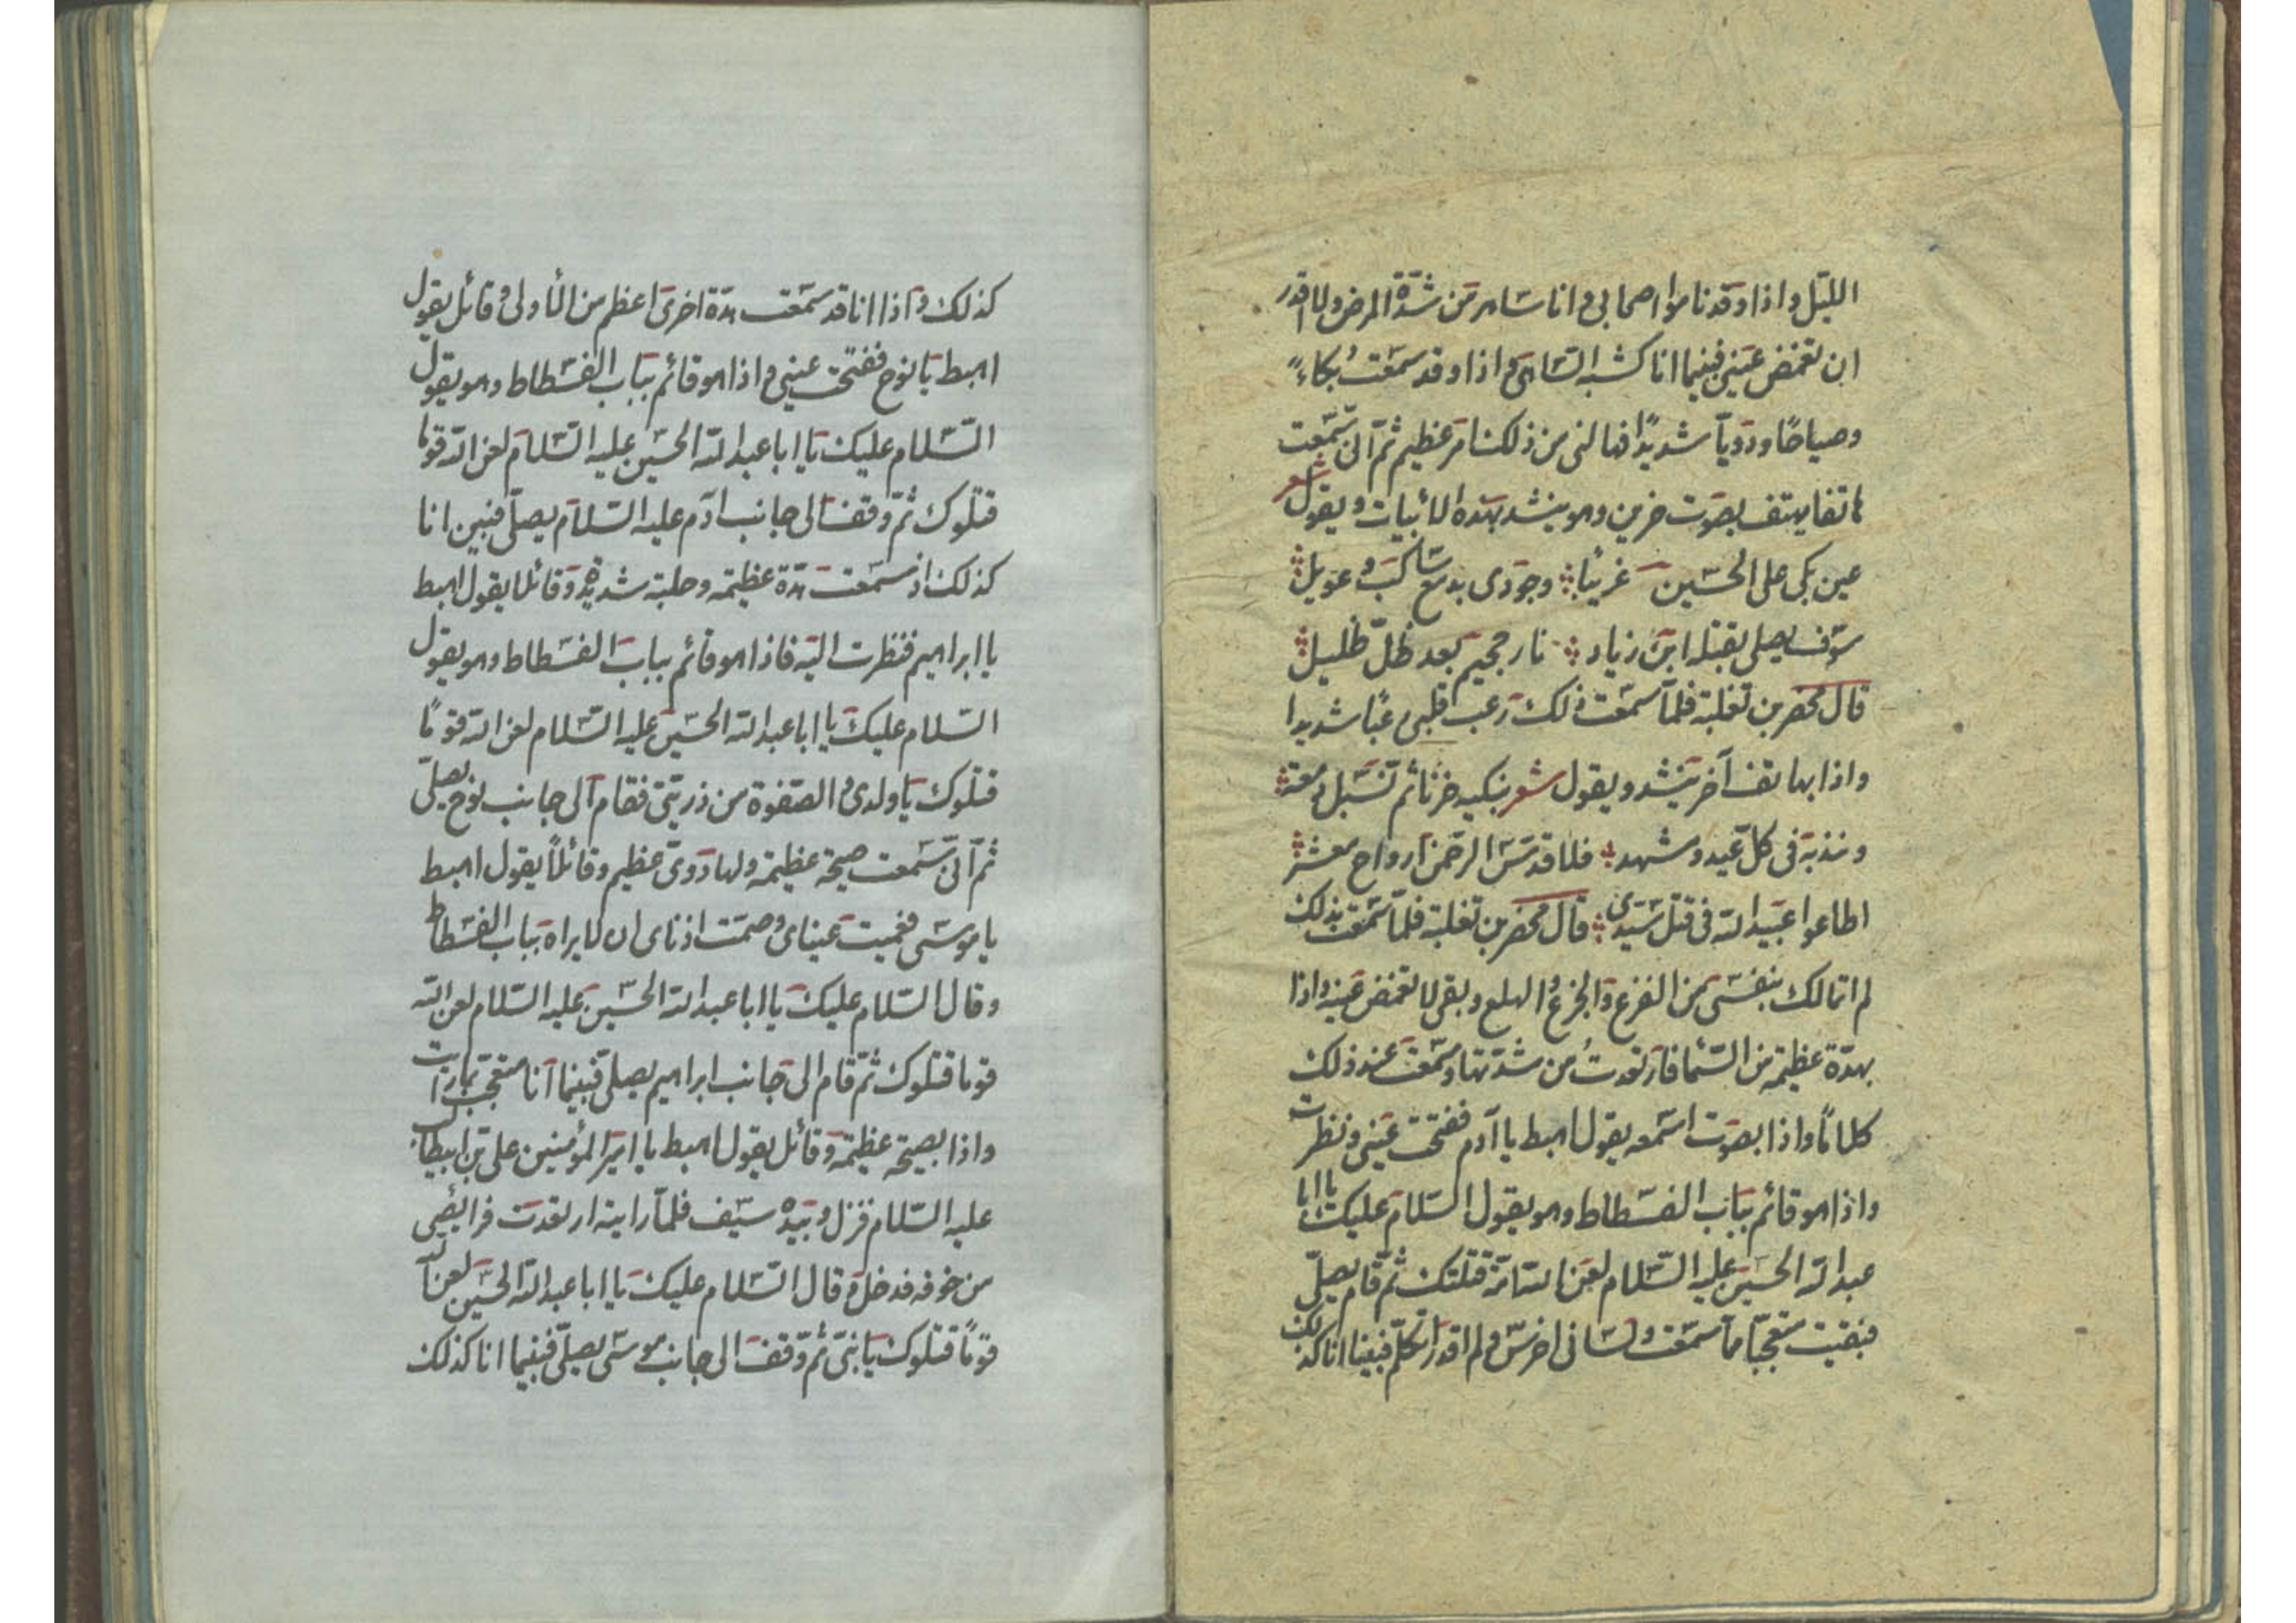 الليل واذا وقد ناموا اصحابي وانا ساهر من شدة المرض ولا اقدر
ان تغمض عيني فبينما انا كشبه الساهي واذا وقد سمعت بكاءً
وصياحًا ودويآ شديدًا فهالني من ذلك امر عظيم ثم آني سمعت
هاتفا يهتف بصوت حزين وهو ينشد بهذه الأبيات ويقول شعر
عين بكي على الحسين غريبًا وجودي بدمع ساكب وعويل
سوف يصلى بقتله ابن زياد نار جحيم بعد ظلّ ظليل
قال محضر بن تغلبة فلمآ سمعت ذلك رعب قلبي رعبًا شديدا
واذا بهاتف آخر ينشد ويقول شعر نبكيه حزنا ثم تسبل دمعة
وندبة في كلّ عيد ومشهد فلا قدس الرحمن ارواح معشر
اطاعوا عبيد الله في قتل سيدي قال محضر بن تغلبة فلمآ سمعت بذلك
لم اتمالك بنفسي من الفزع والجزع والهلع وبقي لا تغمض عيني واذا
بهدّة عظيمة من السمآ فارتعدتُ من شدتها وسمعت عند ذلك
كلامًا واذا بصوت اسمعه يقول اهبط يا آدم ففتحت عيني ونظرت
واذا هو قائم بباب الفسطاط وهو يقول السلام عليك يا ابا
عبد الله الحسين عليه السلام لعن الله امّة قتلتك ثم قام يصلّي
فبقيت متعجبّا مآ سمعت ولساني اخرس ولم اقدر اتكلّم فبينا انا كذلك
كذلك واذا انا قد سمعت هدّة اخرى اعظم من الأولى وقائل يقول
اهبط يا نوح ففتحت عيني واذا هو قائم بباب الفسطاط وهو يقول
السلام عليك يا ابا عبد الله الحسين عليه السلام لعن الله قوما
قتلوك ثم وقف الى جانب ادم عليه السلام يصلّي فبين انا
كذلك اذ سمعت هدّة عظيمة وجلبة شديدة وقائلا يقول اهبط
يا ابراهيم فنظرت اليه فاذا هو قائم بباب الفسطاط وهو يقول
السلام عليك يا ابا عبد الله الحسين عليه السلام لعن الله قومًا
قتلوك يا ولدي والصفوة من ذريتي فقام الى جانب نوح يصلّي
ثم آني سمعت صيحة عظيمة ولها دوىّ عظيم وقائلاً يقول اهبط
يا موسى فعميت عيناي وصمت اذناي ان لا يراه بباب الفسطاط
وقال السلام عليك يا ابا عبد الله الحسين عليه السلام لعن الله
قوما قتلوك ثم قام الى جانب ابراهيم يصلي فبينما انا متعجب بمارايت
واذا بصيحة عظيمة وقائل يقول اهبط يا امير المؤمنين علي بن ابيطالب
عليه السلام فنزل وبيده سيف فلمآ رايته ارتعدت فرائصي
من خوفه فدخل وقال السلام عليك يا ابا عبد الله الحسين لعن الله
قومًا قتلوك يا بنيّ ثم وقف الى جانب موسى يصلّي فبينما انا كذلك